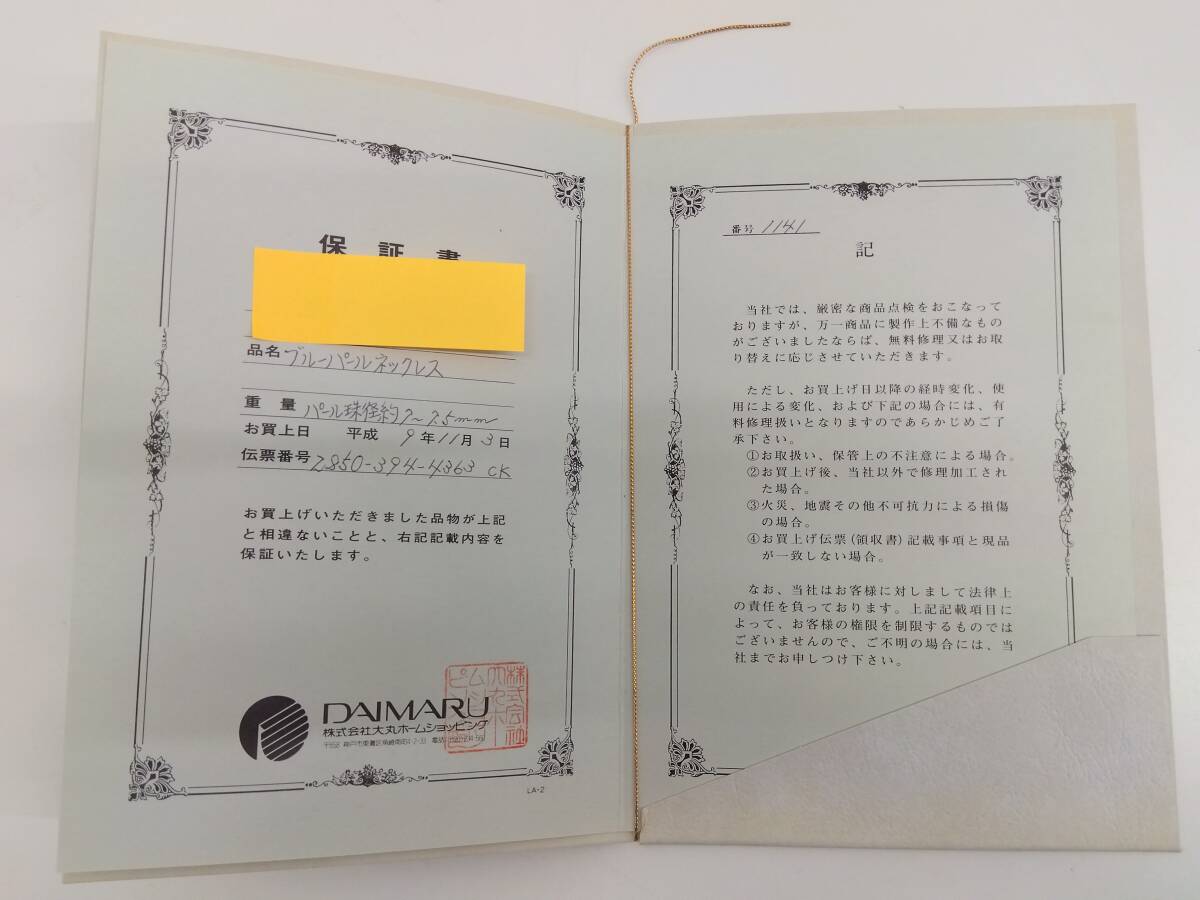 保証書
品名 ブルーパールネックレス
重量 パール珠径約7〜7.5mm
お買上日 平成 9年11月3日
伝票番号 2850-394-4363 CK
お買上げいただきました品物が上記
と相違ないことと、右記記載内容を
保証いたします。
DAIMARU
株式会社大丸ホームショッピング
〒658 神戸市東灘区魚崎南町4-2-33 電話
株式会社大丸ホームショッピング
LA-2
番号 1141
記
当社では、厳密な商品点検をおこなって
おりますが、万一商品に製作上不備なもの
がございましたならば、無料修理又はお取
り替えに応じさせていただきます。
ただし、お買上げ日以降の経時変化、使
用による変化、および下記の場合には、有
料修理扱いとなりますのであらかじめご了
承下さい。
①お取扱い、保管上の不注意による場合。
②お買上げ後、当社以外で修理加工され
た場合。
③火災、地震その他不可抗力による損傷
の場合。
④お買上げ伝票(領収書)記載事項と現品
が一致しない場合。
なお、当社はお客様に対しまして法律上
の責任を負っております。上記記載項目に
よって、お客様の権限を制限するものでは
ございませんので、ご不明の場合には、当
社までお申しつけ下さい。